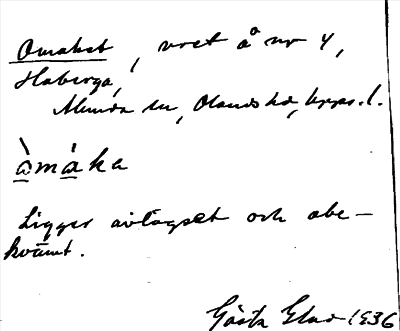 Omaket, vret å nr 4,
Haberga,
Almunda sn, Olands hd, Upps. l.
àmàka
Ligger avlägset och obe-
kvämt.
Gösta Elar 1936